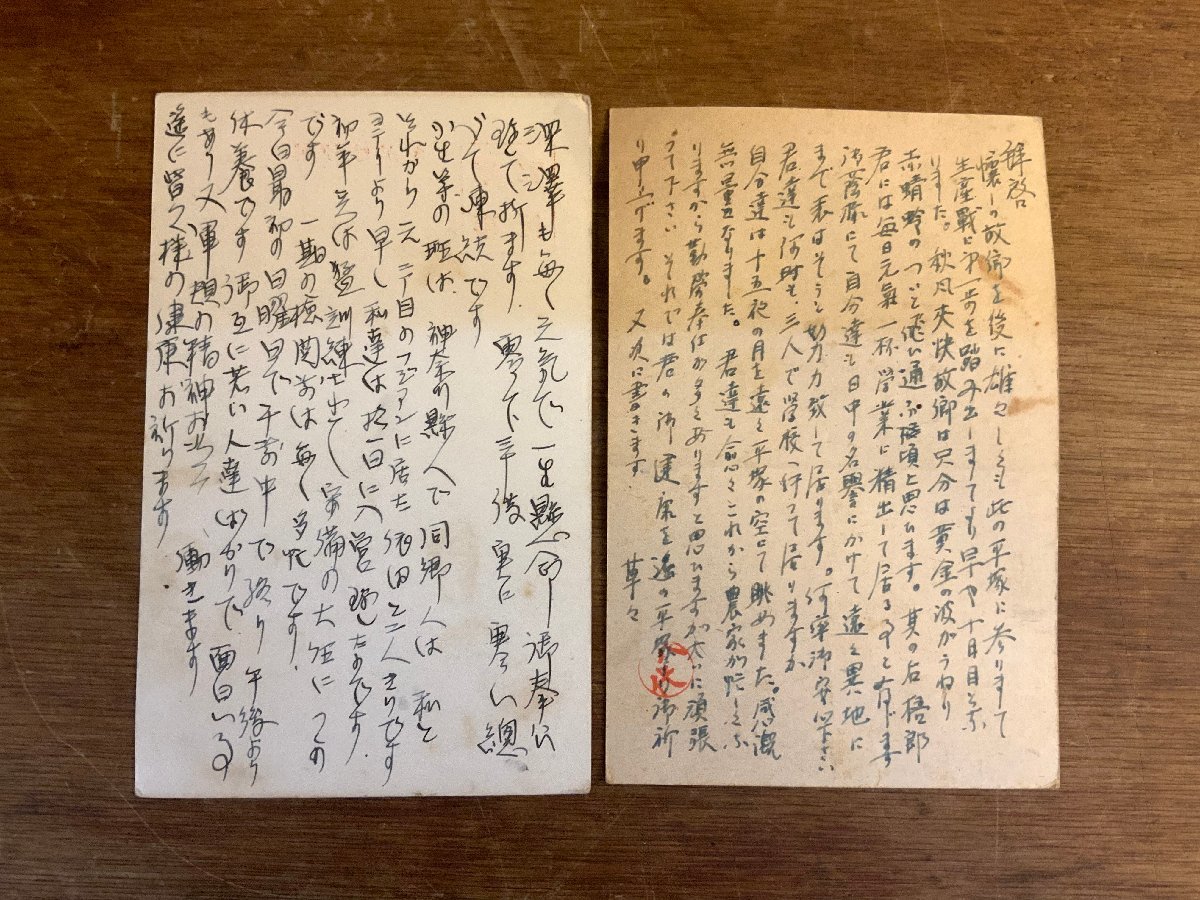 拝啓
懐しの故郷を後に雄々しくも此の平塚に参りまして
生産戦に第一歩を踏み出しましてより早や十日目を
りました。秋風爽快故郷は只今は黄金の波がうねり
赤蜻蛉のついと飛び通ふ頃と思ひます。其の后
君には毎日元氣一杯学業に精出して居る事と存じます
御蔭様にて自分達も日中の名誉にかけて遠く異地に
まで来ましてそうして努力致して居ります。何卒御安心下さい
君達も何時も三人で学校へ行って居りますか
自分達は十五夜の月を遠く平塚の空にて眺めました。感慨
無量なりました。君達も愈々これから農家が忙しくな
りますから勤労奉仕が多くありますと思ひますが大いに頑張
って下さい それでは君の御健康を遠の平塚より御祈
り申上げます。又次に書きます
草々
深澤も毎々元気で一生懸命御奉公
致して折ります. 零下三十後 実に寒い
で凍結です
小生等の班は. 神奈川縣人で同郷人は 私と
それから二人きりです
ヨテーより早し 私達は 十一日に入営致したのです.
初年兵は猛訓練
です 一期の検閲前は毎々多忙です.
今日最初の日曜日で午前中で終り午後より
休養です 御互に若い人達ばかりで面白い事
もあり又軍規の精神 働きます
遥に皆々様の健康お祈ります